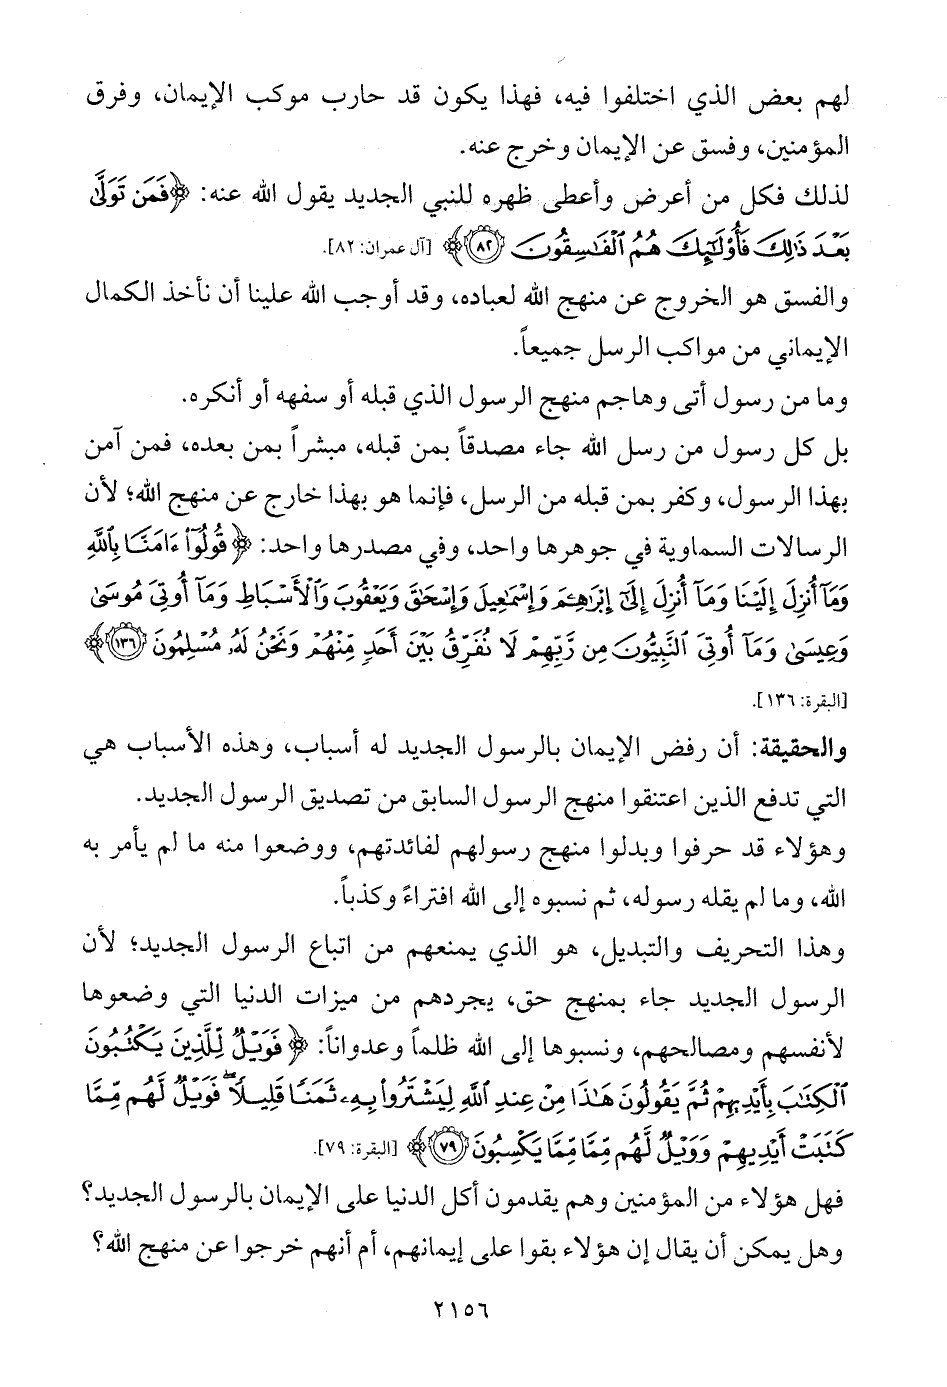 لهم بعض الذي اختلفوا فيه، فهذا يكون قد حارب موكب الإيمان، وفرق
المؤمنين، وفسق عن الإيمان وخرج عنه.
لذلك فكل من أعرض وأعطى ظهره للنبي الجديد يقول الله عنه: ﴿فَمَن تَوَلَّىٰ
بَعْدَ ذَٰلِكَ فَأُوْلَٰٓئِكَ هُمُ ٱلْفَٰسِقُونَ ٨٢﴾ [آل عمران: ٨٢].
والفسق هو الخروج عن منهج الله لعباده، وقد أوجب الله علينا أن نأخذ الكمال
الإيماني من مواكب الرسل جميعاً.
وما من رسول أتى وهاجم منهج الرسول الذي قبله أو سفهه أو أنكره.
بل كل رسول من رسل الله جاء مصدقاً بمن قبله، مبشراً بمن بعده، فمن آمن
بهذا الرسول، وكفر بمن قبله من الرسل، فإنما هو بهذا خارج عن منهج الله؛ لأن
الرسالات السماوية في جوهرها واحد، وفي مصدرها واحد: ﴿قُولُوٓاْ ءَامَنَّا بِٱللَّهِ
وَمَآ أُنزِلَ إِلَيْنَا وَمَآ أُنزِلَ إِلَىٰٓ إِبْرَٰهِـۧمَ وَإِسْمَٰعِيلَ وَإِسْحَٰقَ وَيَعْقُوبَ وَٱلْأَسْبَاطِ وَمَآ أُوتِىَ مُوسَىٰ
وَعِيسَىٰ وَمَآ أُوتِىَ ٱلنَّبِيُّونَ مِن رَّبِّهِمْ لَا نُفَرِّقُ بَيْنَ أَحَدٍ مِّنْهُمْ وَنَحْنُ لَهُۥ مُسْلِمُونَ ١٣٦﴾
[البقرة: ١٣٦].
والحقيقة: أن رفض الإيمان بالرسول الجديد له أسباب، وهذه الأسباب هي
التي تدفع الذين اعتنقوا منهج الرسول السابق من تصديق الرسول الجديد.
وهؤلاء قد حرفوا وبدلوا منهج رسولهم لفائدتهم، ووضعوا منه ما لم يأمر به
الله، وما لم يقله رسوله، ثم نسبوه إلى الله افتراءً وكذباً.
وهذا التحريف والتبديل، هو الذي يمنعهم من اتباع الرسول الجديد؛ لأن
الرسول الجديد جاء بمنهج حق، يجردهم من ميزات الدنيا التي وضعوها
لأنفسهم ومصالحهم، ونسبوها إلى الله ظلماً وعدواناً: ﴿فَوَيْلٌ لِّلَّذِينَ يَكْتُبُونَ
ٱلْكِتَٰبَ بِأَيْدِيهِمْ ثُمَّ يَقُولُونَ هَٰذَا مِنْ عِندِ ٱللَّهِ لِيَشْتَرُواْ بِهِۦ ثَمَنًا قَلِيلًا ۖ فَوَيْلٌ لَّهُم مِّمَّا
كَتَبَتْ أَيْدِيهِمْ وَوَيْلٌ لَّهُم مِّمَّا مِّمَّا يَكْسِبُونَ ٧٩﴾ [البقرة: ٧٩].
فهل هؤلاء من المؤمنين وهم يقدمون أكل الدنيا على الإيمان بالرسول الجديد؟
وهل يمكن أن يقال إن هؤلاء بقوا على إيمانهم، أم أنهم خرجوا عن منهج الله؟
٢١٥٦